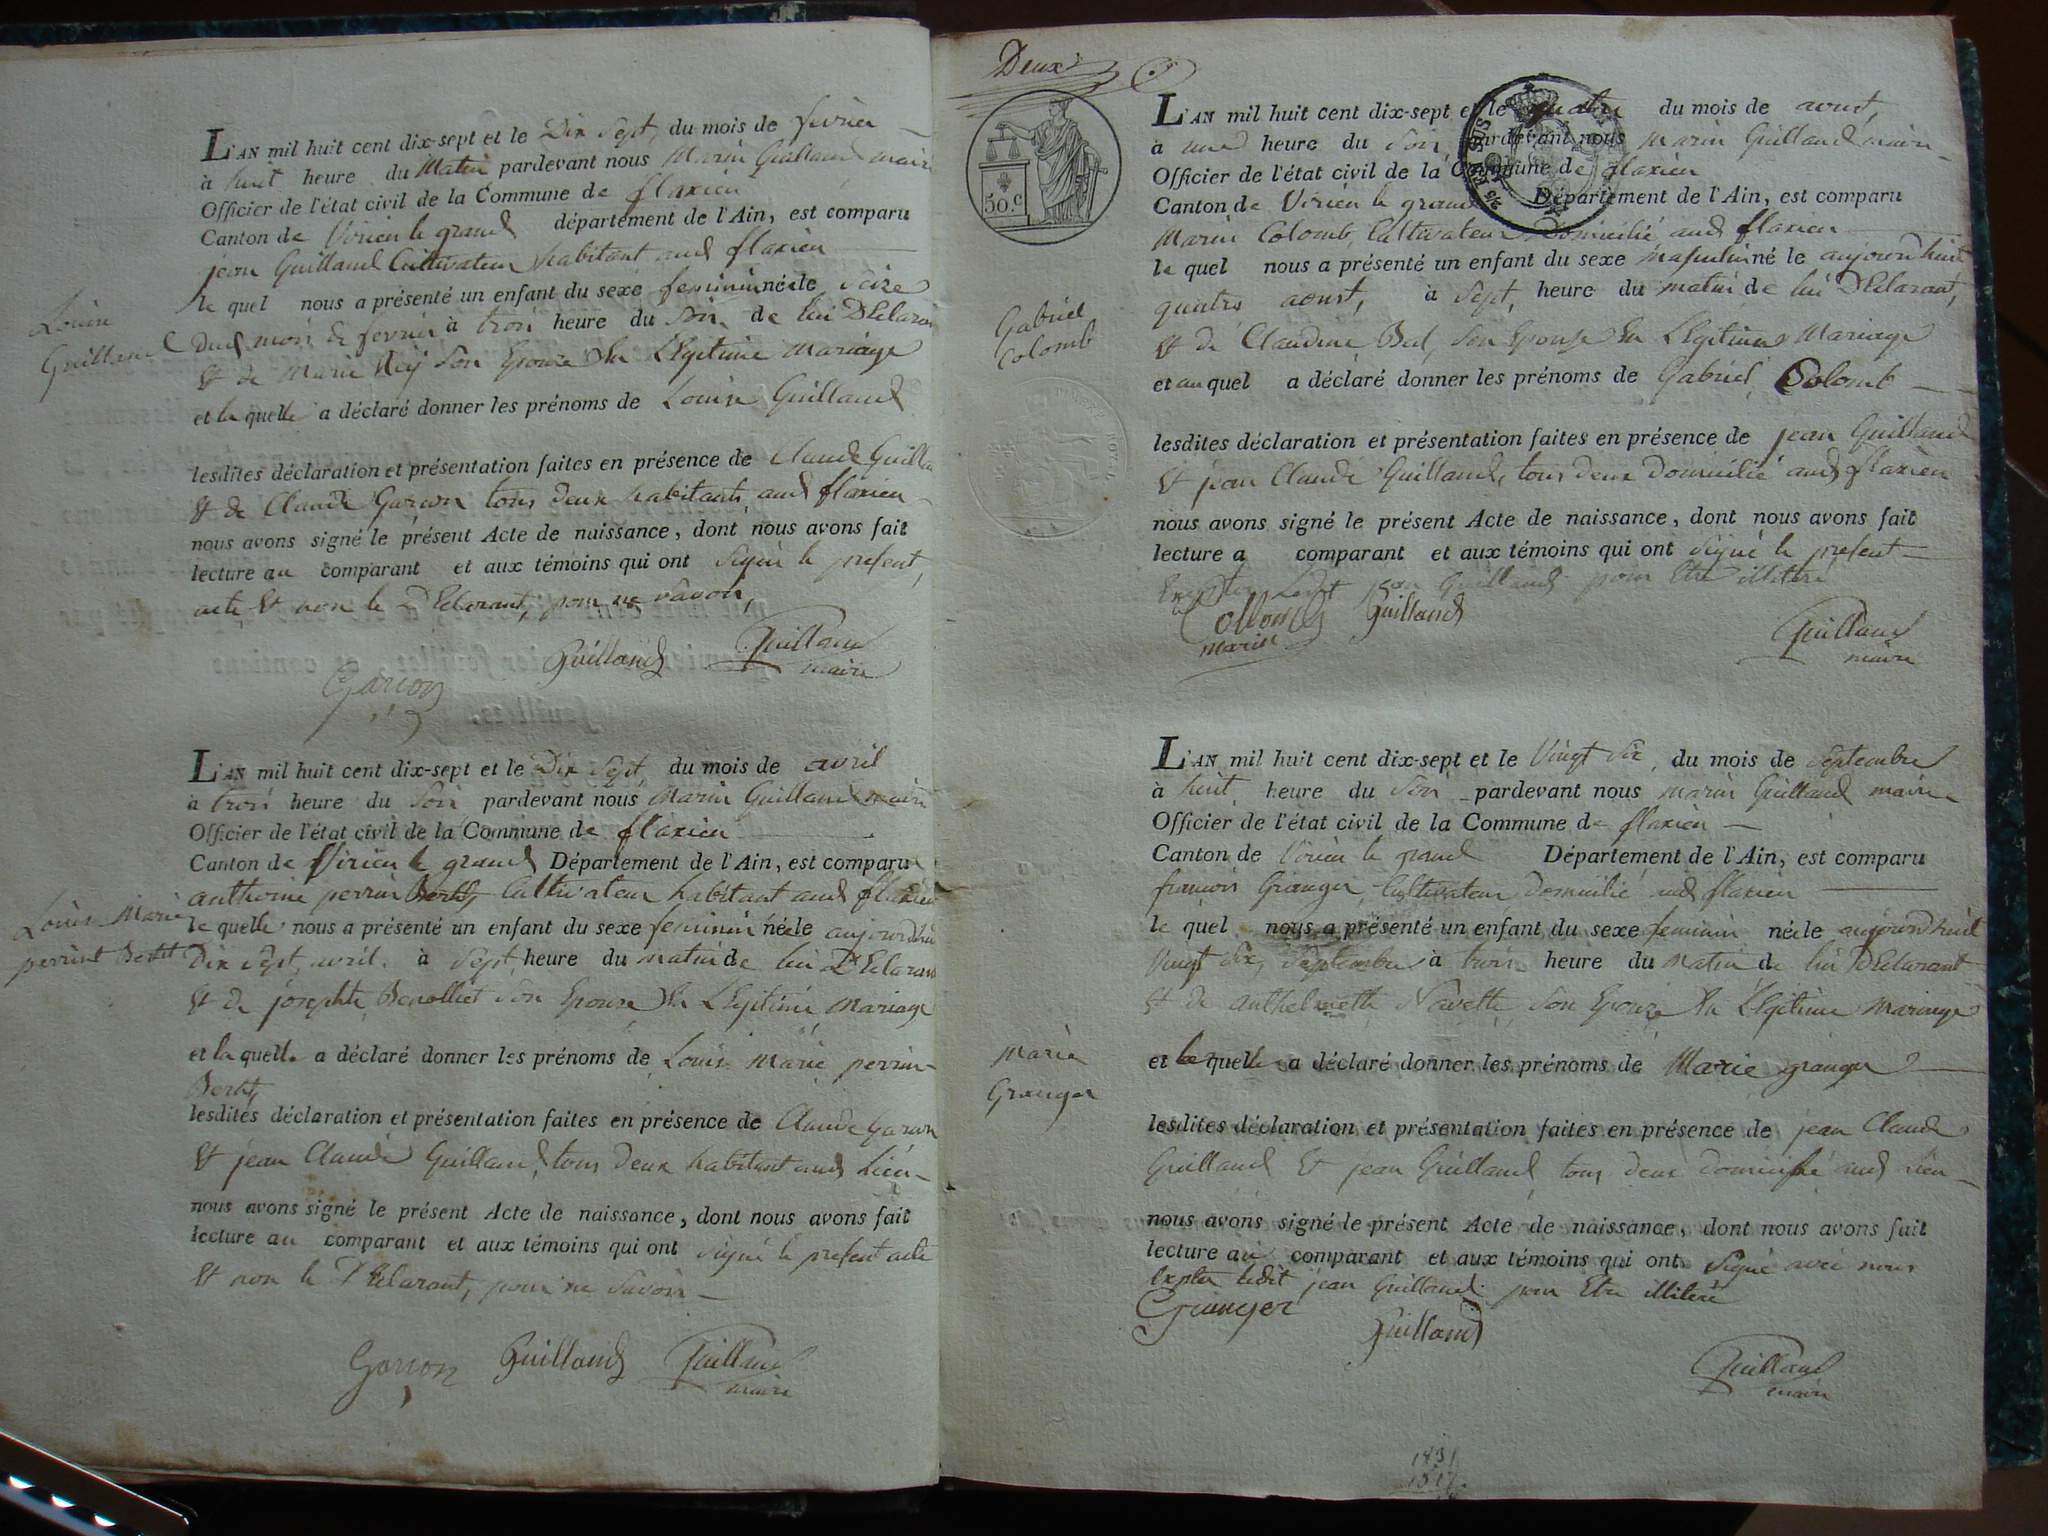 Louise
Guilland
L'AN mil huit cent dix-sept et le Dix Sept, du mois de fevrier
à huit heure du Matin pardevant nous Marin Guilland maire
Officier de l'état civil de la Commune de flaxieu
Canton de Virieu le grand département de l'Ain, est comparu
jean Guilland Cultivateur habitant aud flaxieu
le quel nous a présenté un enfant du sexe feminin née le Seize
Dud mois de fevrier à trois heure du Soir de lui Déclarant
Et de Marie Rey Son Epouse En Légitime Mariage
et la quelle a déclaré donner les prénoms de Louise Guilland
lesdites déclaration et présentation faites en présence de Claude Guilla
Et de Claude Garcon tous deux habitants aud flaxieu
nous avons signé le présent Acte de naissance, dont nous avons fait
lecture au comparant et aux témoins qui ont Signé le present
acte Et non le Déclarant, pour ne Savoir,
Guilland Guilland
maire
Garcon
Louise Marie
perrint Bertet
L'AN mil huit cent dix-sept et le Dix Sept, du mois de avril
à trois heure du Soir pardevant nous Marin Guilland maire
Officier de l'état civil de la Commune de flaxieu
Canton de Virieu le grand Département de l'Ain, est comparu
anthoine perrin Berthet, Cultivateur habitant aud flaxieu
le quelle nous a présenté un enfant du sexe feminin née le aujourdhui
Dix Sept avril à Sept heure du matin de lui Déclarant
Et de josephte Son Epouse En Légitime Mariage
et la quelle a déclaré donner les prénoms de Louise Marie perrin
lesdites déclaration et présentation faites en présence de Claude Garcon
Et jean Claude Guilland, tous deux habitant aud Lieu
nous avons signé le présent Acte de naissance, dont nous avons fait
lecture au comparant et aux témoins qui ont Signé le present acte
Et non le Déclarant, pour ne Savoir
Garcon Guilland Guilland
maire
Deux
50.c
EN SUS
Gabriel
Colomb
L'AN mil huit cent dix-sept et le quatre du mois de aoust,
à une heure du Soir pardevant nous Marin Guilland maire
Officier de l'état civil de la Commune de flaxieu
Canton de Virieu le grand Département de l'Ain, est comparu
Marin Colomb, Cultivateur Domicilié aud flaxieu
le quel nous a présenté un enfant du sexe Masculin né le aujourdhui
quatre aoust, à Sept, heure du matin de lui Déclarant,
Et de Claudine Bal, Son Epouse En Légitime Mariage
et au quel a déclaré donner les prénoms de Gabriel Colomb
lesdites déclaration et présentation faites en présence de jean Guilland
Et jean Claude Guilland, tous deux Domicilié aud flaxieu
nous avons signé le présent Acte de naissance, dont nous avons fait
lecture a comparant et aux témoins qui ont Signé le present
Excepter Ledit jean Guilland pour Etre illiteré
Collomb Guilland
marin
Guilland
maire
marie
Granger
L'AN mil huit cent dix-sept et le Vingt Six, du mois de Septembre
à huit heure du Soir pardevant nous marin Guilland maire
Officier de l'état civil de la Commune de flaxieu
Canton de Virieu le grand Département de l'Ain, est comparu
francois Granger, Cultivateur Domicilié aud flaxieu
le quel nous a présenté un enfant du sexe feminin née le aujourdhuit
Vingt Six, Septembre à trois heure du Matin de lui Déclarant
Et de anthelmette Navette, Son Epouse En Légitime Mariage
et la quelle a déclaré donner les prénoms de Marie granger
lesdites déclaration et présentation faites en présence de jean Claude
Guilland Et jean Guilland tous deux domicilié aud lieu
nous avons signé le présent Acte de naissance, dont nous avons fait
lecture au comparant et aux témoins qui ont Signé avec nous
Excepter ledit jean Guilland pour Etre illiteré
Granger
Guilland
Guilland
maire